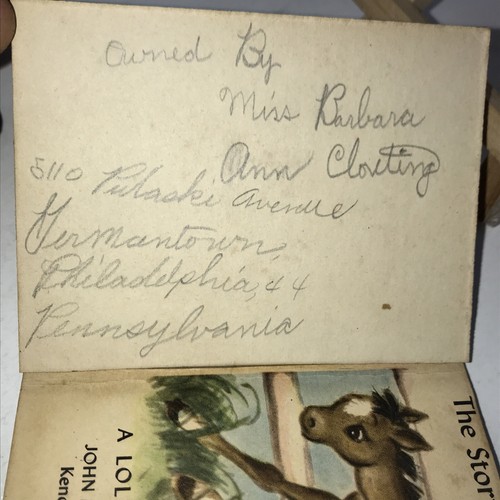 Owned By
Miss Barbara
Ann Cloeting
5110 Pulaski Avenue
Germantown,
Philadelphia, 44
Pennsylvania
The Stor
A LOL
JOHN
Kenc